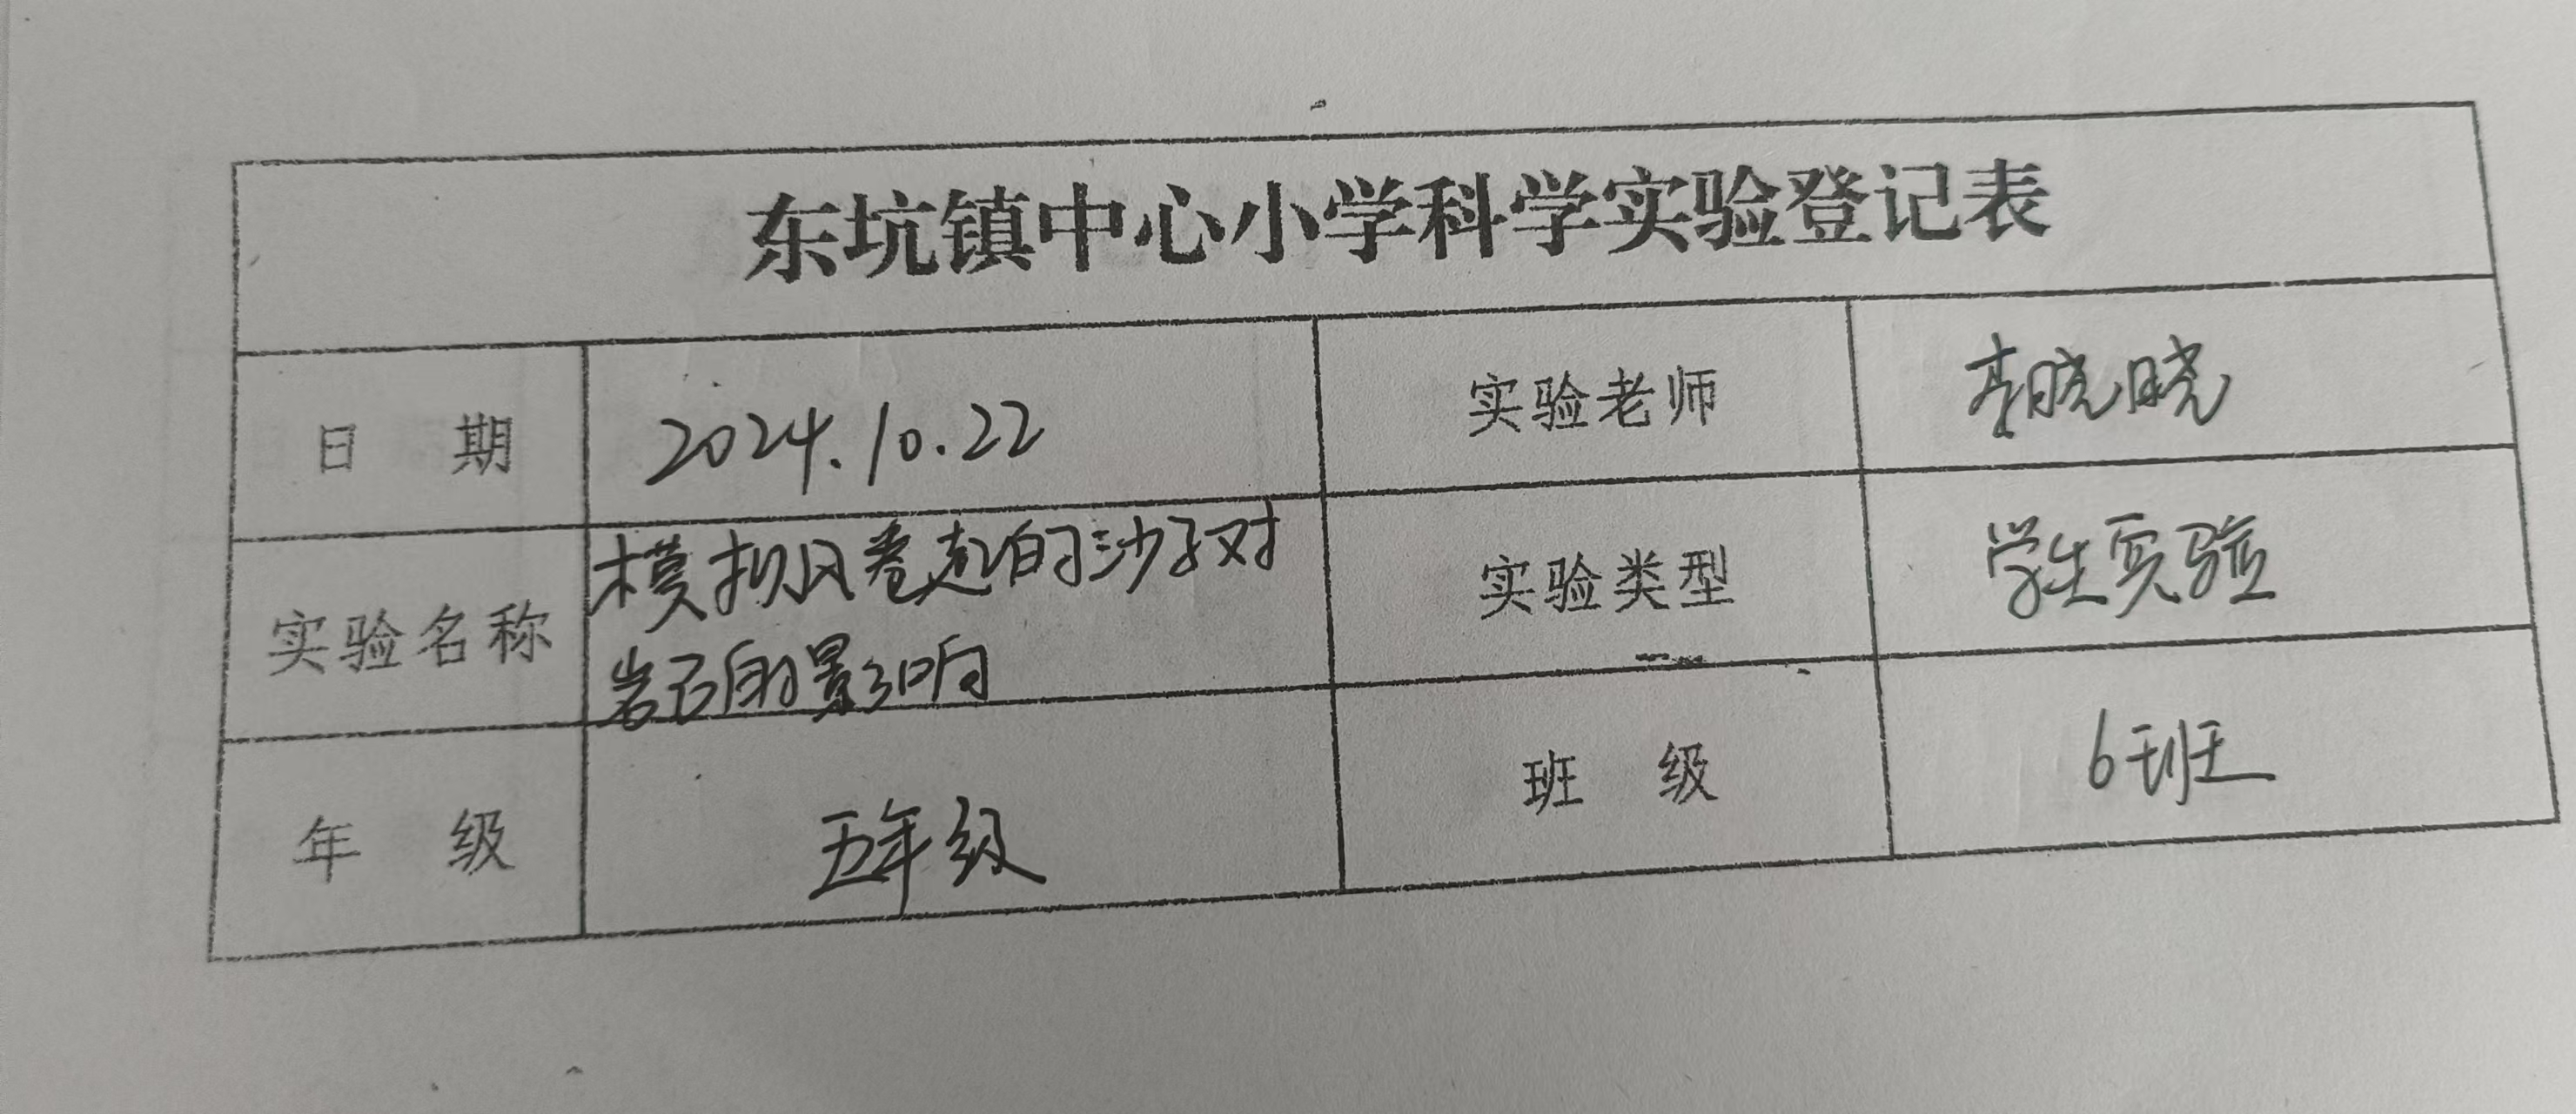 东坑镇中心小学科学实验登记表
日 期 2024.10.22 实验老师 李晓晓
实验名称 模拟风卷起的沙子对
岩石的影响 实验类型 学生实验
年 级 五年级 班 级 6班